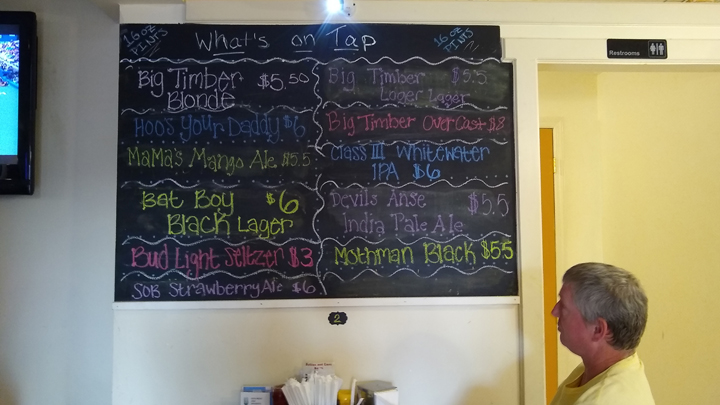 16 oz
PINTS
What's on Tap
16 oz
PINTS
Big Timber $5.50
Blonde
Hoo's Your Daddy $6
Mama's Mango Ale $5.5
Bat Boy $6
Black Lager
Bud Light Seltzer $3
SOB Strawberry Ale $6
Big Timber $5.5
Loger Lager
Big Timber OverCast $8
Class III Whitewater
IPA $6
Devils Anse $5.5
India Pale Ale
Mothman Black $5.5
Restrooms
2